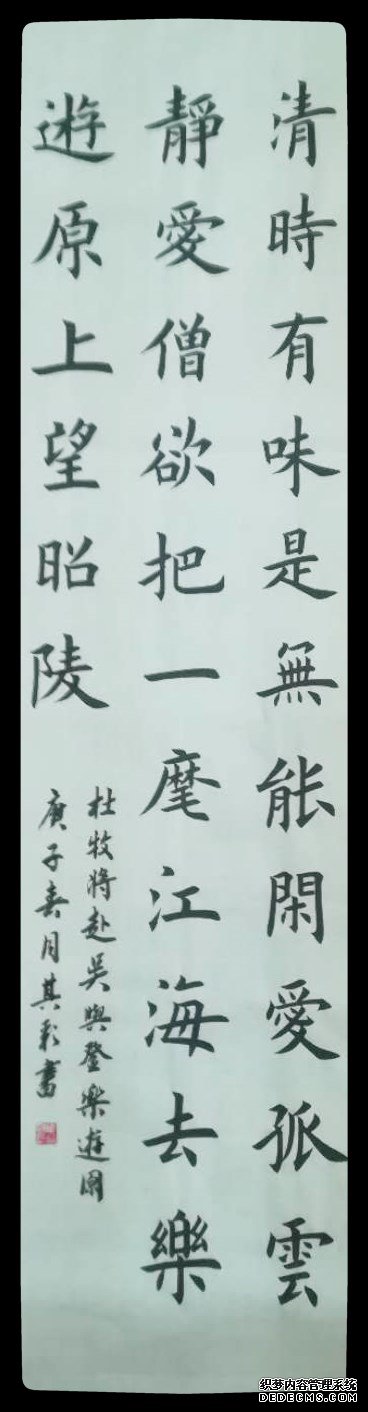 清時有味是無能閑愛孤雲
靜愛僧欲把一麾江海去樂
遊原上望昭陵
杜牧將赴吳興登樂遊園
庚子春月其彩書
织梦内容管理系统
DEDECMS.COM